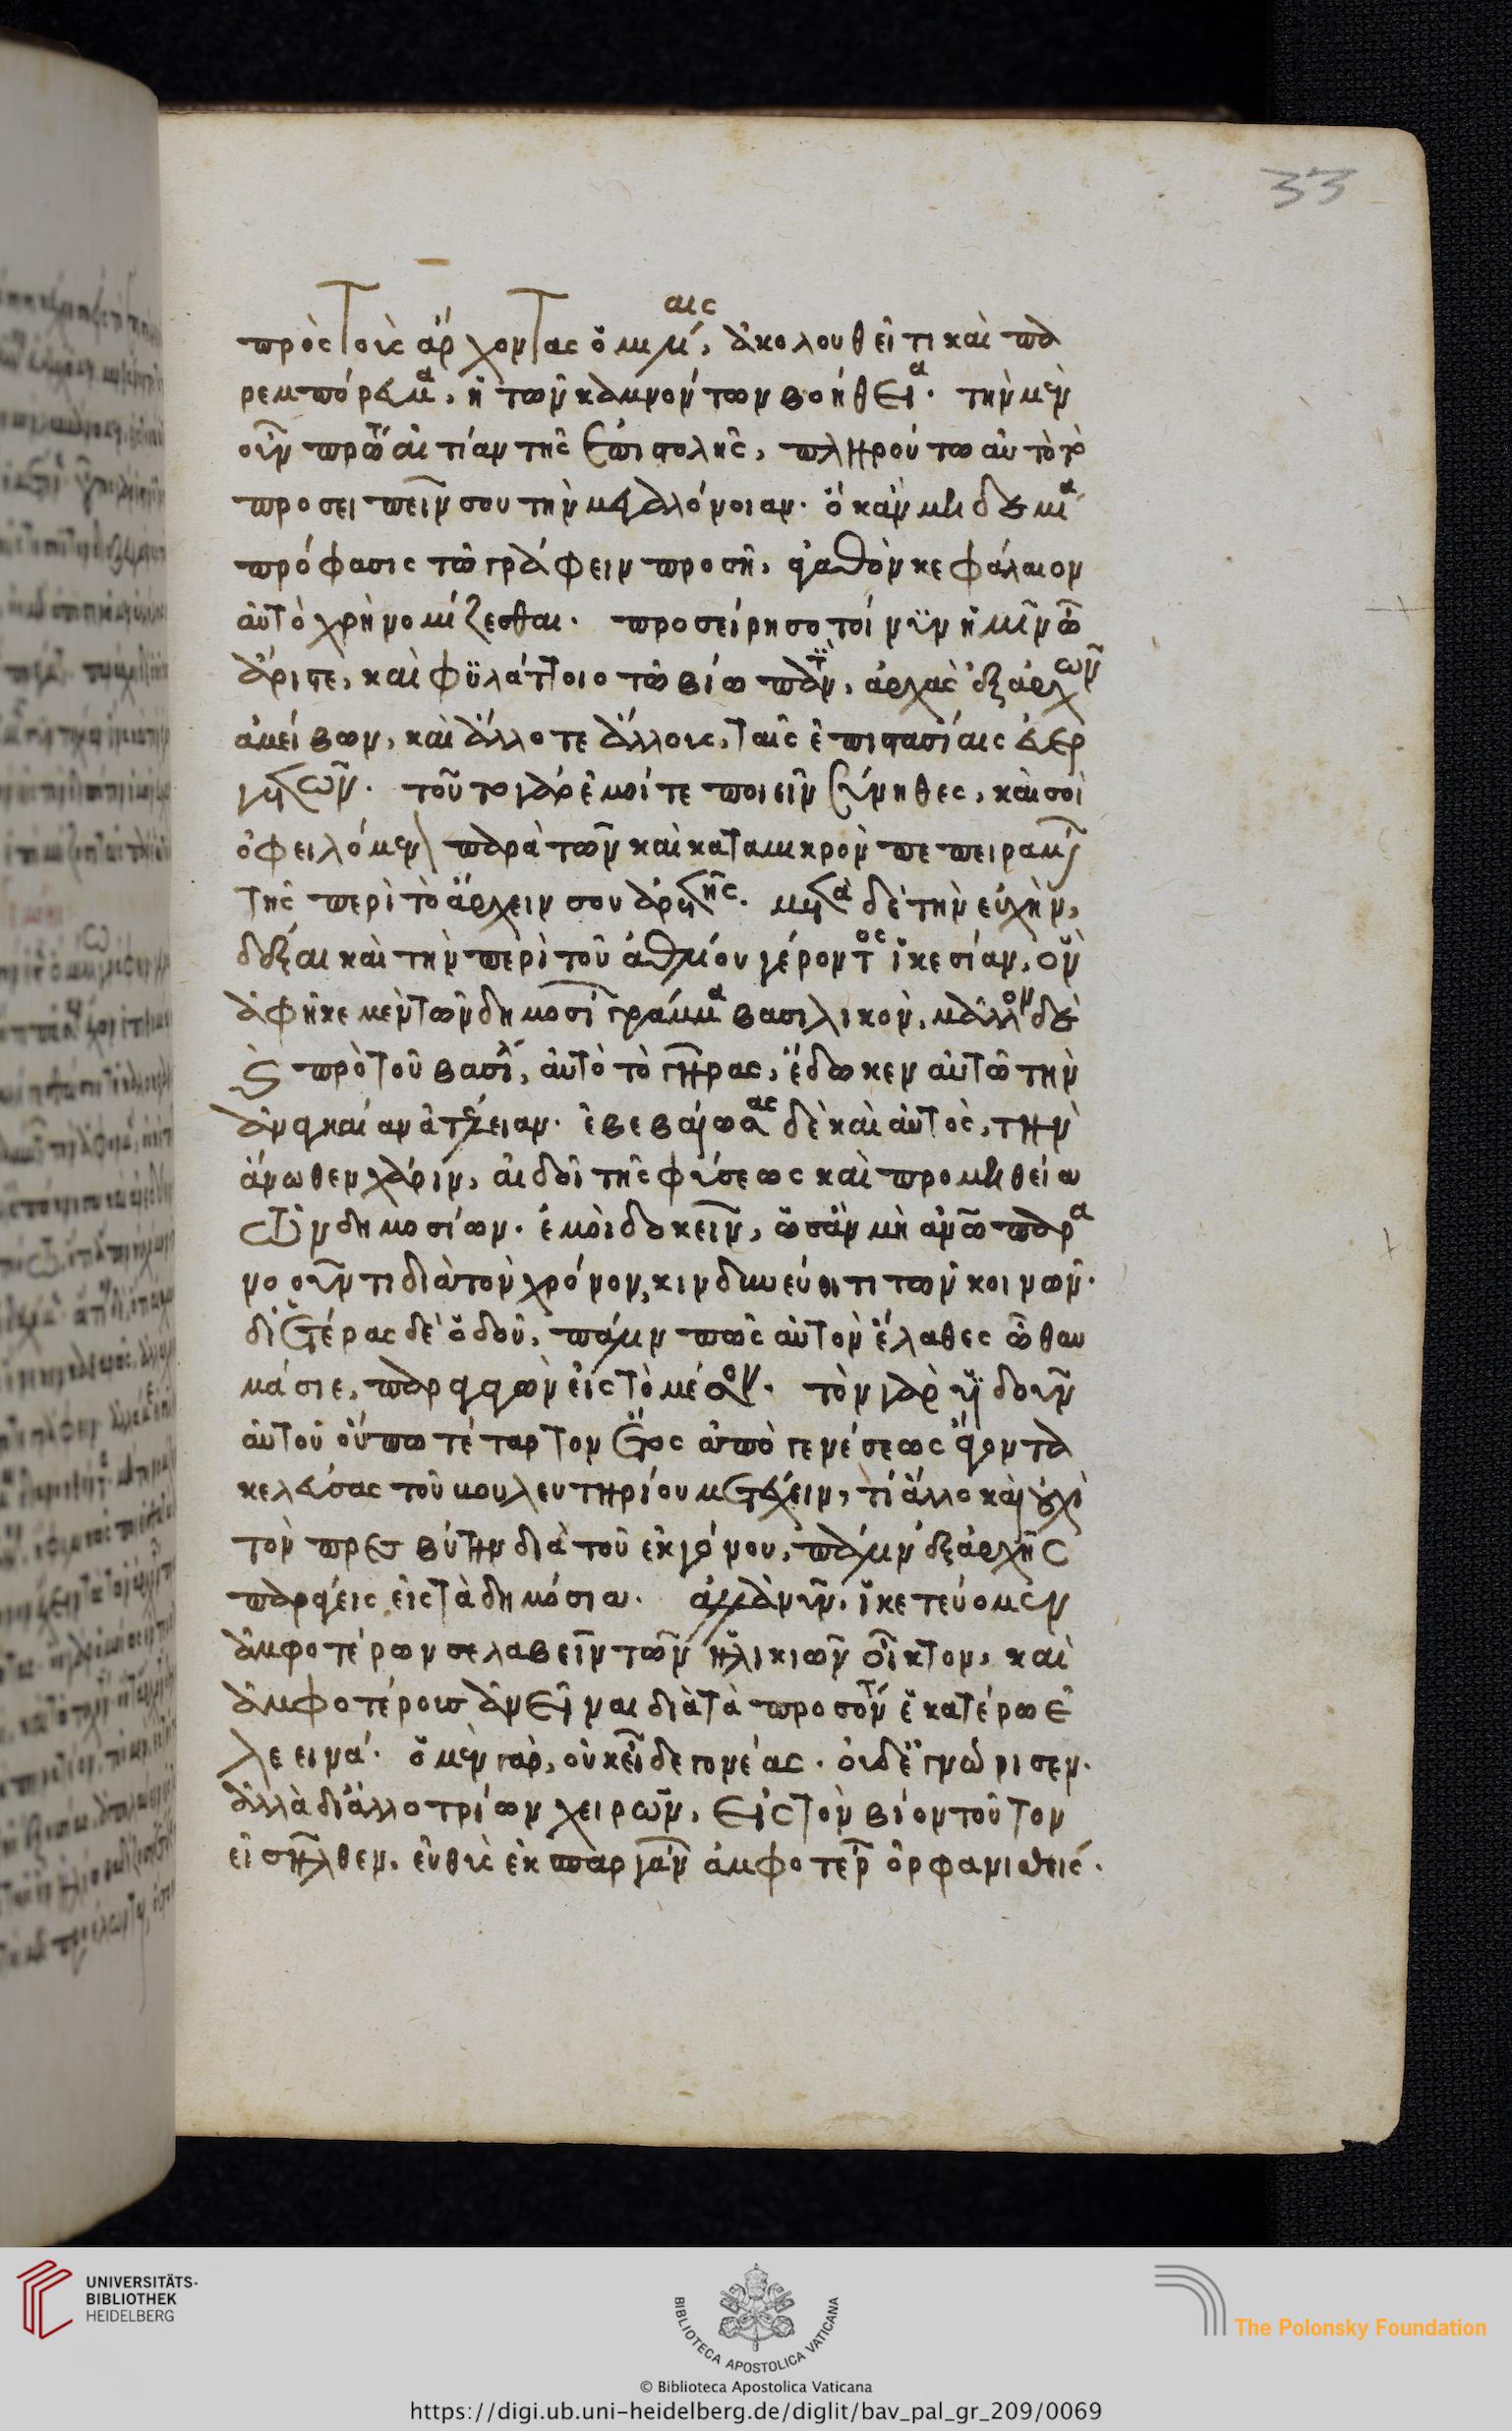 33
πρὸς τοὺς ἄρχοντας ὁμιλίαις, ἀκολουθεῖ τι καὶ πα
ρεμπόρευμα, ἡ τῶν καμνόντων βοήθεια. τὴν μὲν
οὖν πρώτην αἰτίαν τῆς ἐπιστολῆς, πληρούτω αὐτὸ τὸ
προσειπεῖν σου τὴν μεγαλόνοιαν. ὃ κἂν μηδεμία
πρόφασις τῷ γράφειν προσῇ, ἀγαθὸν κεφάλαιον
αὐτὸ χρὴ νομίζεσθαι. προσείρησό τοίνυν ἡμῖν ὦ
ἄριστε, καὶ φυλάττοιο τῷ βίῳ παντί, ἀρχὰς ἐξ ἀρχῶν
ἀμείβων, καὶ ἄλλοτε ἄλλους, ταῖς ἐπιστασίαις εὐερ
γετῶν. τοῦτο γὰρ ἐμοί τε ποιεῖν σύνηθες, καὶ σοὶ
ὀφειλόμενον παρὰ τῶν καὶ κατὰ μικρὸν πεπειραμένων
τῆς περὶ τὸ ἄρχειν σου ἀρετῆς. μετὰ δὲ τὴν εὐχὴν,
δέξαι καὶ τὴν περὶ τοῦ ἀθλίου γέροντος ἱκεσίαν, ὃν
ἀφῆκε μὲν τῶν δημοσίων γράμμα βασιλικὸν, μᾶλλον δὲ
καὶ πρὸ τοῦ βασιλέως, αὐτὸ τὸ γῆρας, ἔδωκεν αὐτῷ τὴν
ἀναγκαίαν ἀτέλειαν. ἐβεβαίωσας δὲ καὶ αὐτὸς, τὴν
ἄνωθεν χάριν, αἰδοῖ τῆς φύσεως καὶ προμηθείᾳ
τῶν δημοσίων. ἐμοὶ δοκεῖν, ὡς ἂν μὴ ἀνθρώπῳ παρα
νοοῦντι διὰ τὸν χρόνον, κινδυνεύῃ τι τῶν κοινῶν.
δι' ἑτέρας δὲ ὁδοῦ, πάλιν πως αὐτὸν ἔλαθες ὦ θαυ
μάσιε, παραγαγὼν εἰς τὸ μέσον. τὸν γὰρ υἱϊδοῦν
αὐτοῦ οὔπω τέταρτον ἔτος ἀπὸ γενέσεως ἄγοντα
κελεύσας τοῦ βουλευτηρίου μετέχειν, τί ἄλλο καὶ οὐχὶ
τὸν πρεσβύτην διὰ τοῦ ἐκγόνου, πάλιν ἐξ ἀρχῆς
παράγεις εἰς τὰ δημόσια. ἀλλὰ νῦν, ἱκετεύομεν
ἀμφοτέρων σε λαβεῖν τῶν ἡλικιῶν οἶκτον, καὶ
ἀμφοτέρους ἀνεῖναι διὰ τὰ προσόντα ἑκατέρῳ ἐ
λεεινά. ὁ μὲν γὰρ, οὐκ εἶδε γονέας. οὐδ' ἐγνώρισεν.
ἀλλὰ δι' ἀλλοτρίων χειρῶν, εἰς τὸν βίον τοῦτον
εἰσῆλθεν, εὐθὺς ἐκ σπαργάνων ἀμφοτέρων ὀρφανισθείς.
UNIVERSITÄTS-
BIBLIOTHEK
HEIDELBERG
BIBLIOTECA APOSTOLICA VATICANA
The Polonsky Foundation
© Biblioteca Apostolica Vaticana
https://digi.ub.uni-heidelberg.de/diglit/bav_pal_gr_209/0069